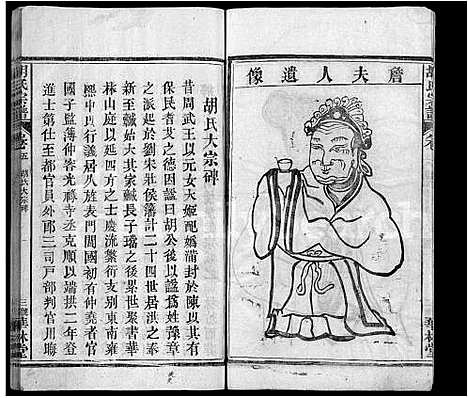 像遺人夫詹
胡氏大宗碑
昔周武王以元女大姬配媯滿封於陳以其有
保民耆艾之德因謚曰胡公後以謚為姓豫章
之派起於劉宋壯侯藩計二十四世居洪之奉
新至城始大其家城長子璫之後累世聚書華
林山庭以延四方之士慶流叢衍支別東南雍
熙中行義居八旌表門閭國初有仲堯者官
國子監薄仲容光祿寺丞克順以端拱二年登
進士第仕至都官員外郎三司戶部判官用晦
胡氏宗譜
卷五
胡氏大宗碑
一
華林堂